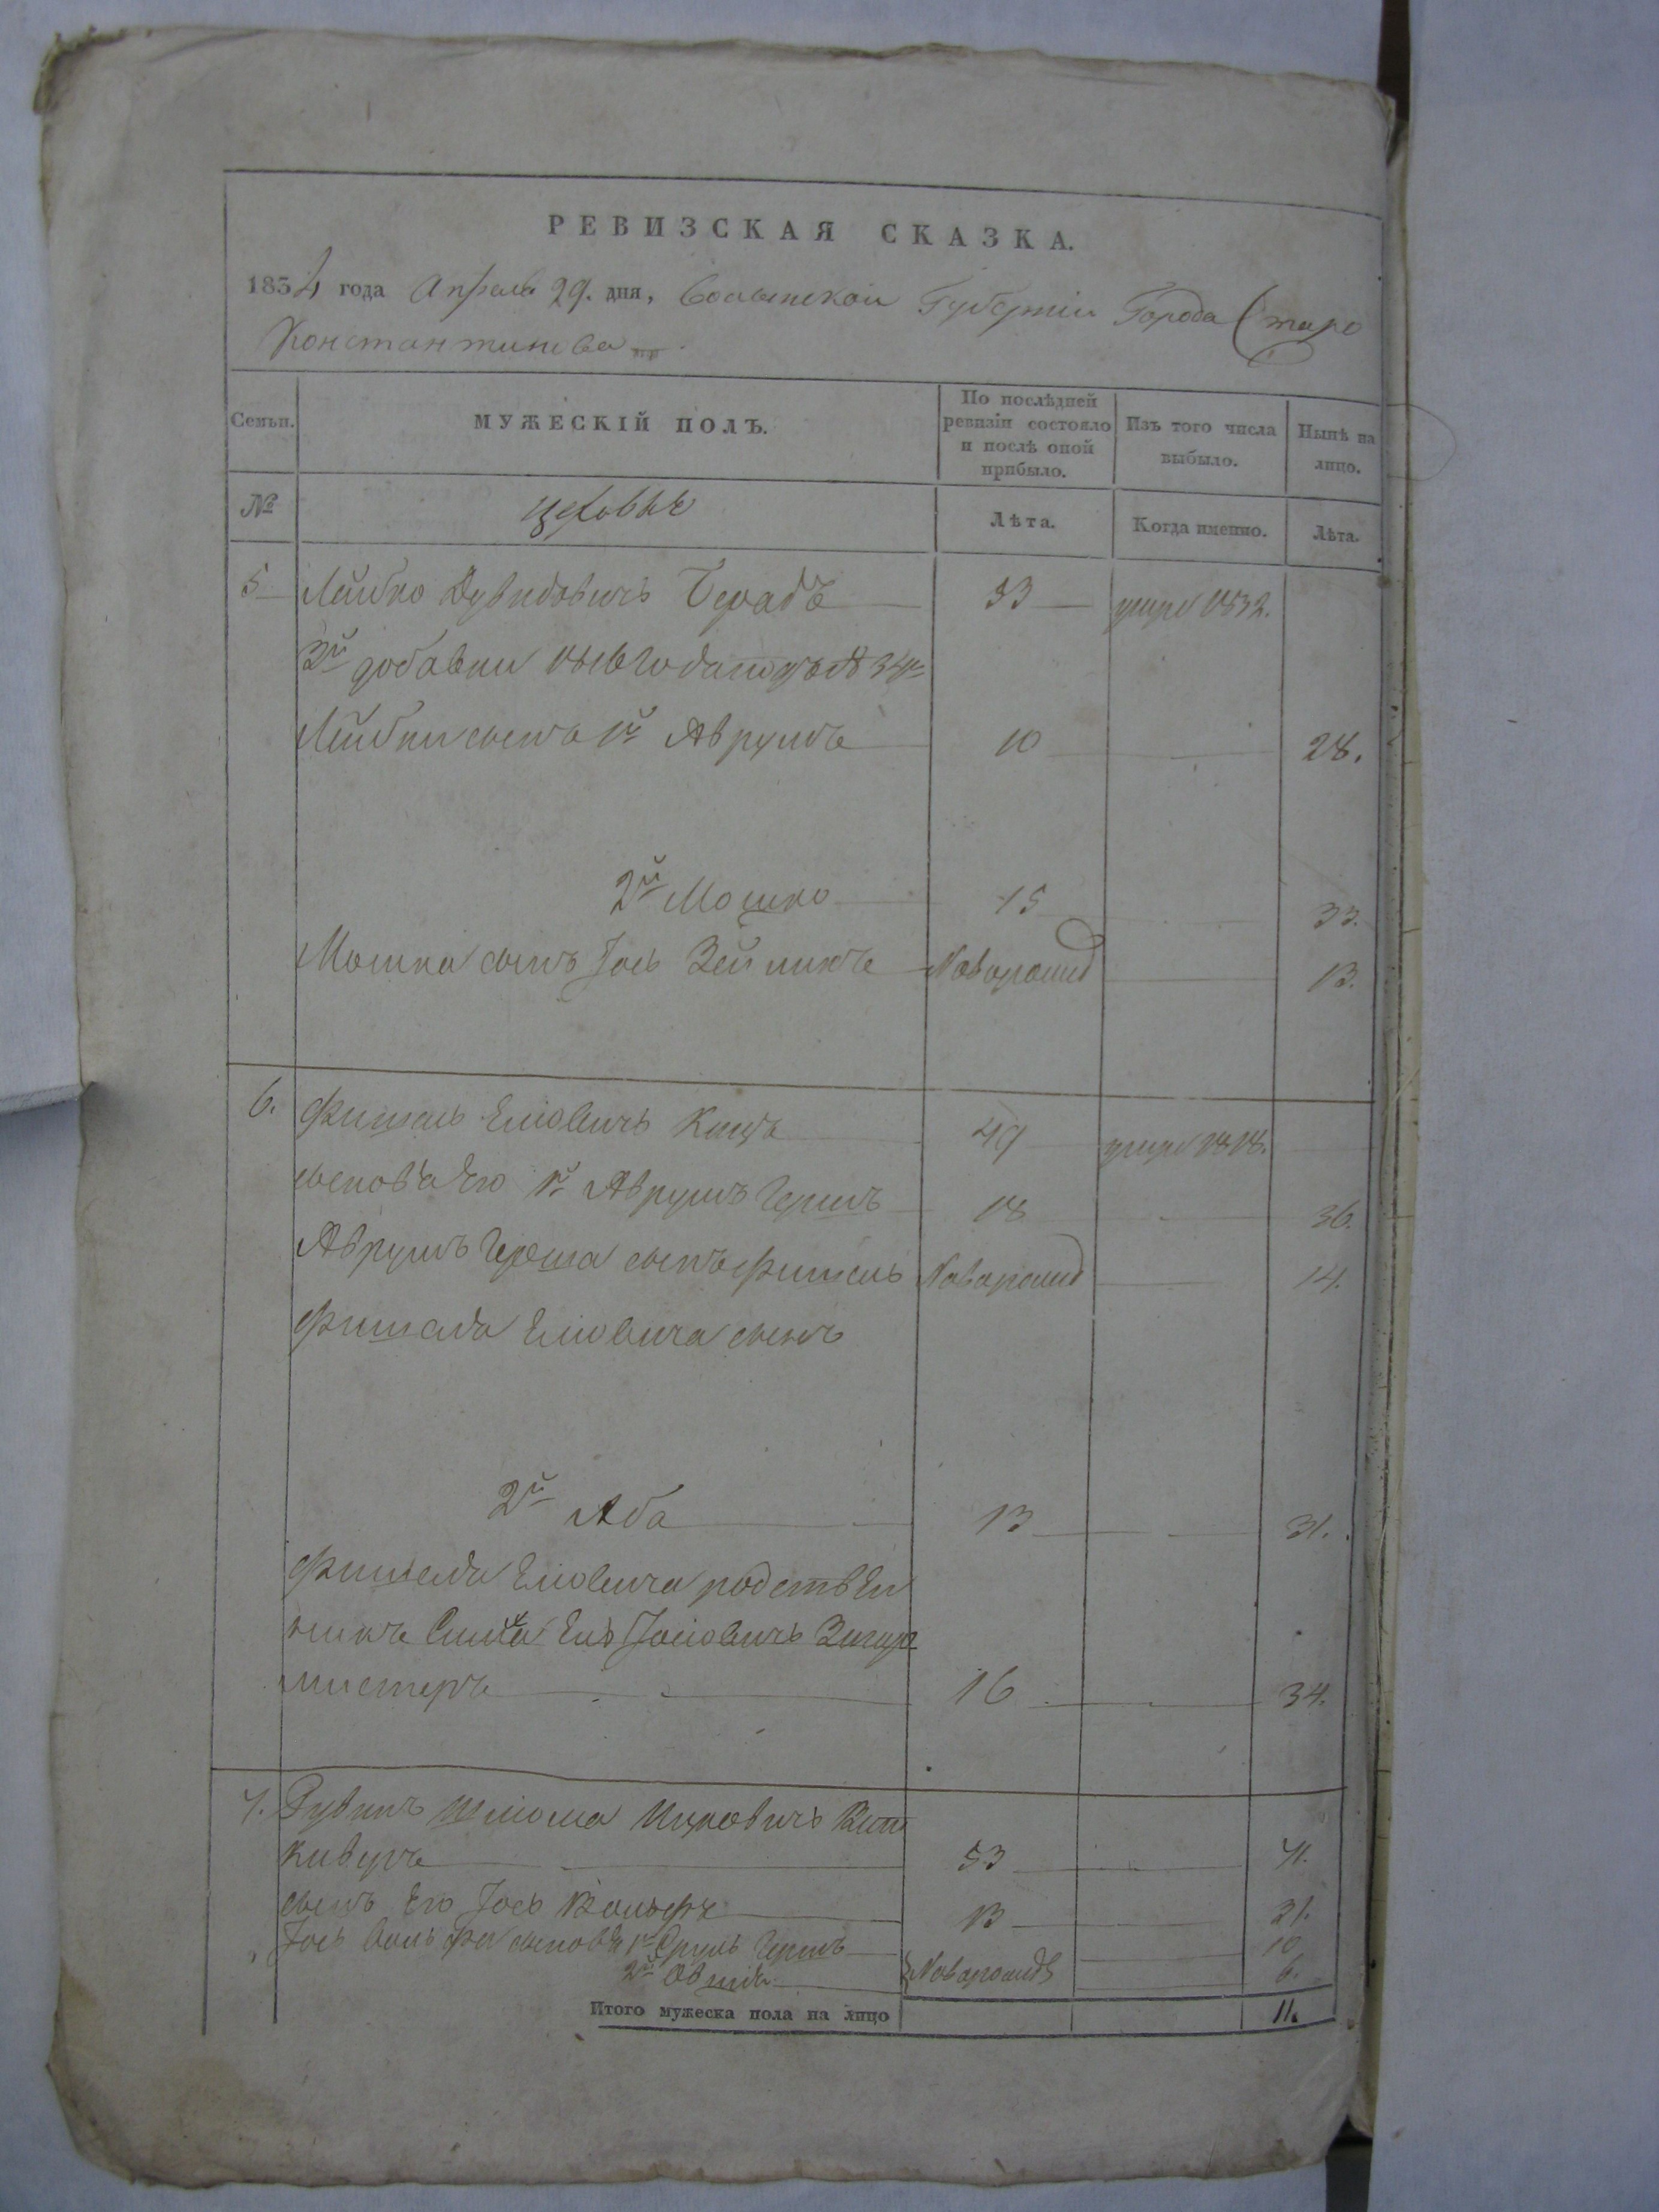 РЕВИЗСКАЯ СКАЗКА.
1834 года Апреля 29. дня, Волынской Губернiи Города Старо
Константинова
Семьи.
МУЖЕСКІЙ ПОЛЪ.
По послѣдней ревизіи состояло и послѣ оной прибыло.
Изъ того числа выбыло.
Нынѣ на лицо.
№
цеховые
Лѣта.
Когда именно.
Лѣта.
5 Лейбко Дувидовичъ 53 умре 1832.
3й добавки 1816 года подъ № 34м
Лейбки сынъ 1й Аврумъ 10 28.
2й Мошко 15 33.
Мошка сынъ Іось Зейликъ Новорожд 13.
6. Фишель Еліовичъ Кацъ 49 умре 1818.
сыновья Его 1й Аврумъ Гершъ 18 36.
Аврумъ Герша сынъ Фишель Новорожд 14.
Фишеля Еліовича сынъ
2й Аба 13 31.
Фишеля Еліовича родствен
никъ Симха Елъ Іосіовичъ
мистеръ 16 34.
7. Рувинъ Шліома Ицковичъ
53 71.
сынъ Его Іось Вольфъ 13 31.
Іось Вольфа сыновья 1й Сруль Гершъ 10
2й Овшія Новорожд 6.
Итого мужеска пола на лицо 11.